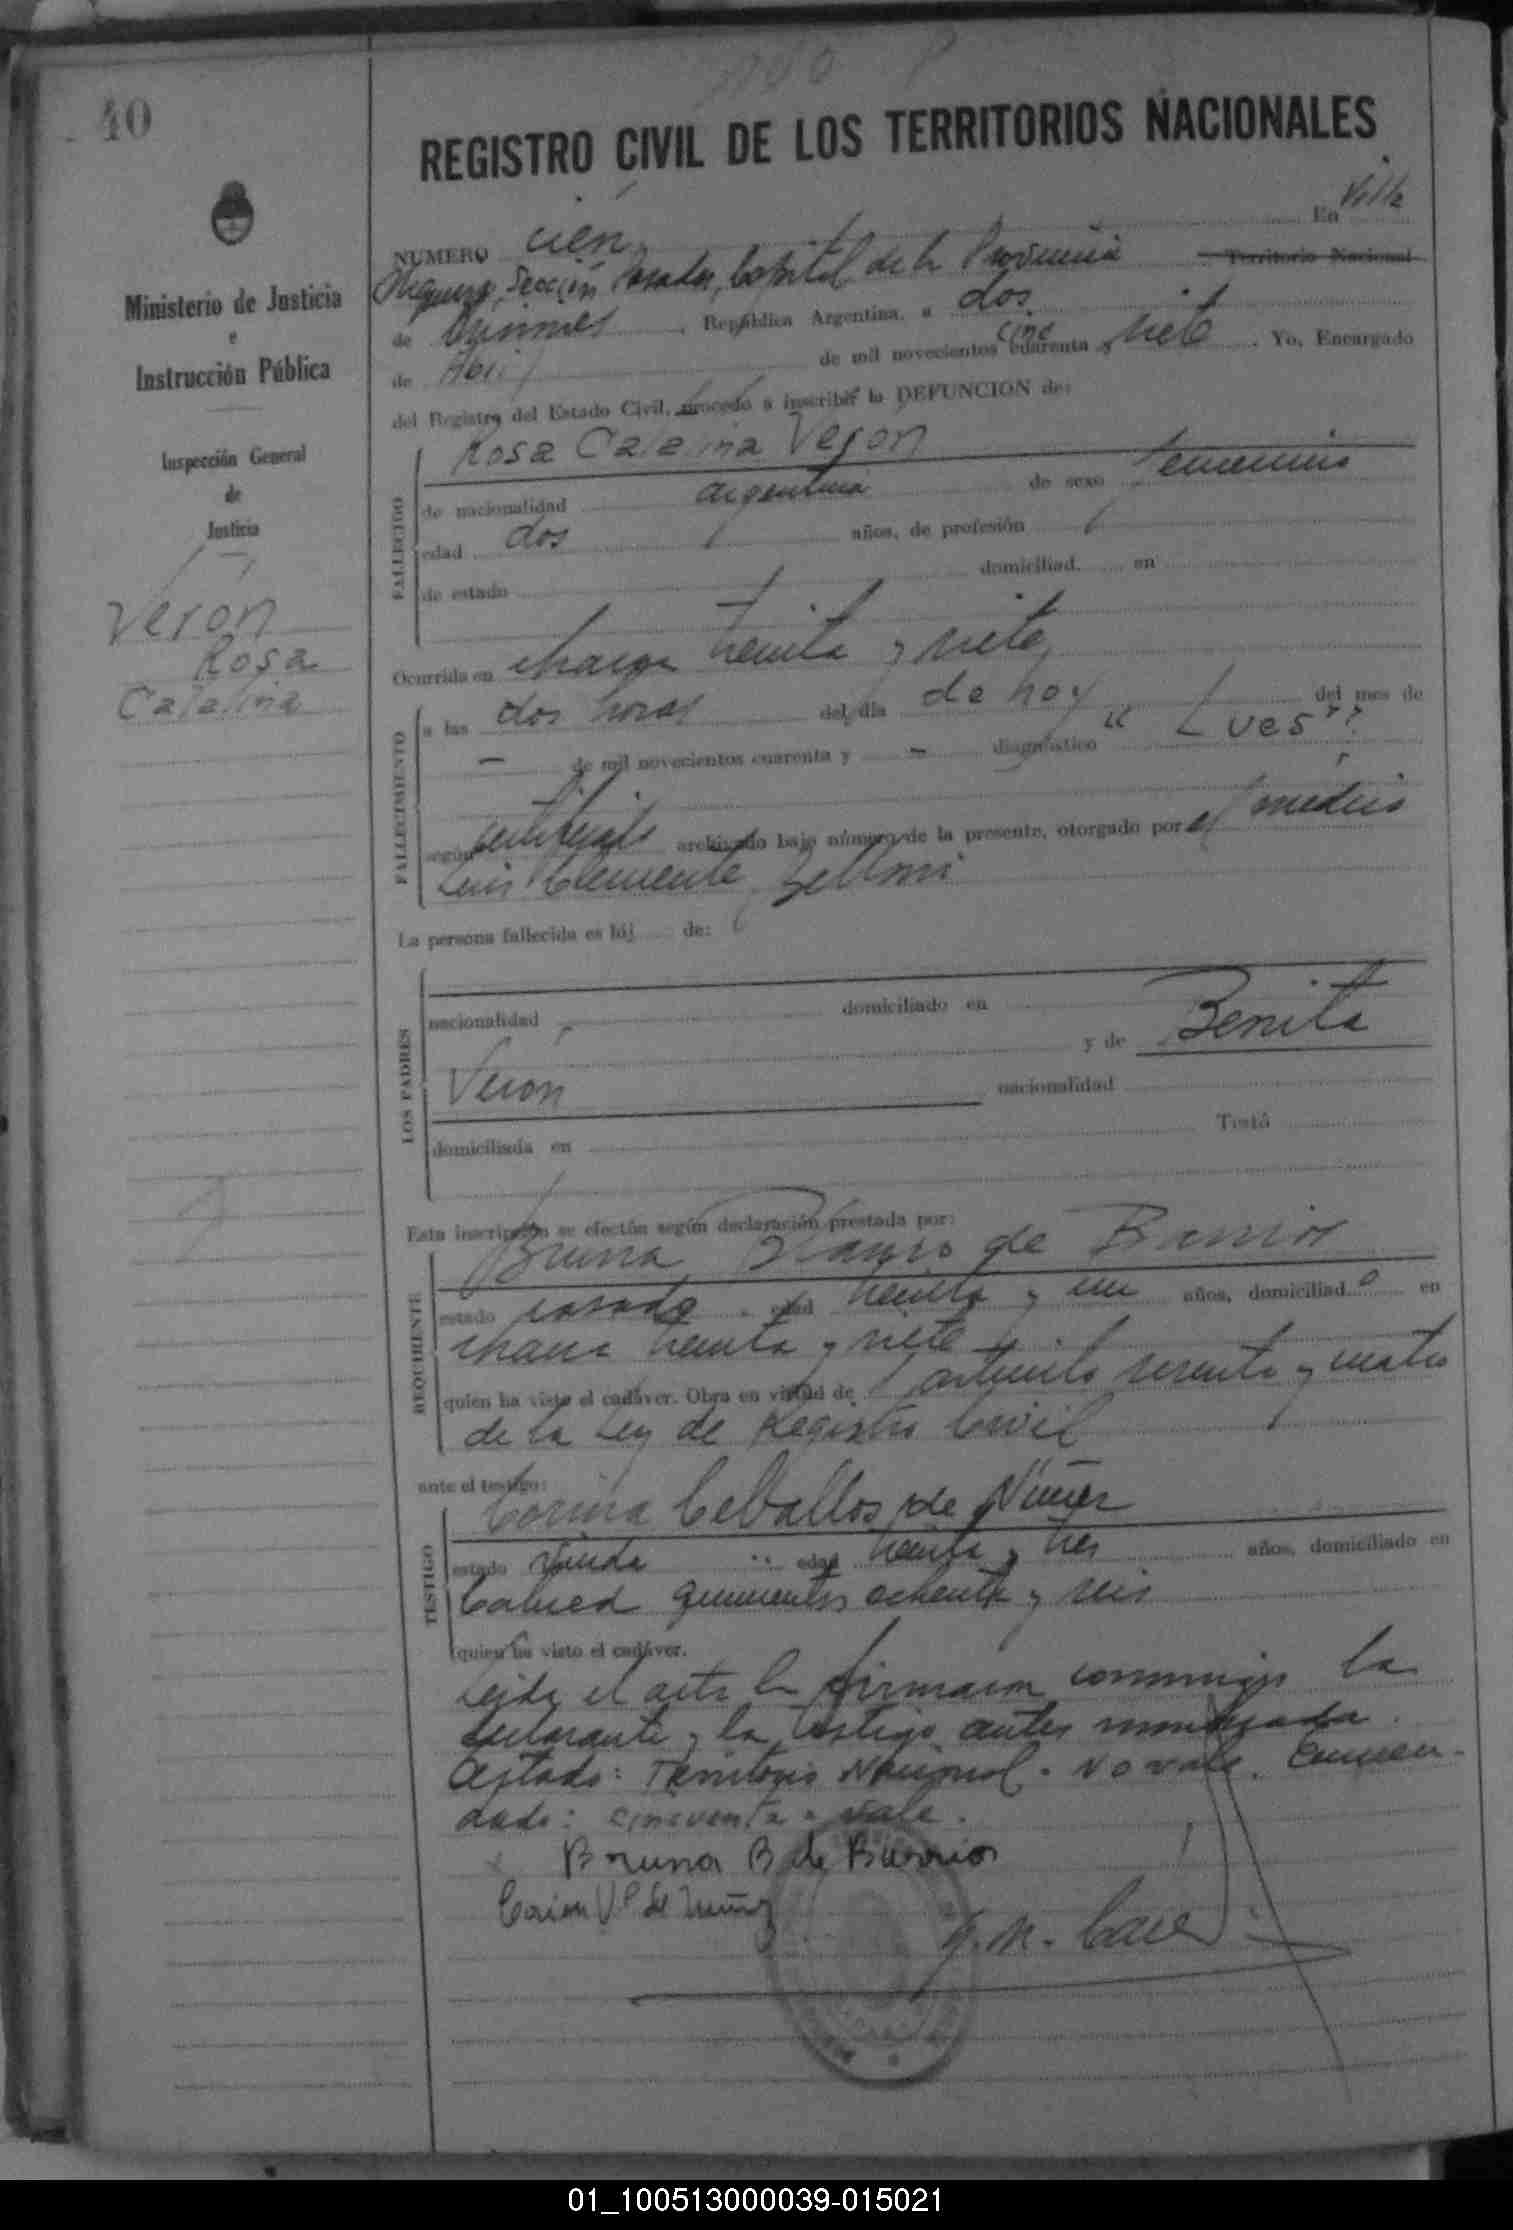 40
REGISTRO CIVIL DE LOS TERRITORIOS NACIONALES
Ministerio de Justicia
e
Instrucción Pública
Inspección General
de
Justicia
Verón
Rosa
Catalina
NUMERO cien En Villa
Sección Posadas, Capital de la Provincia Territorio Nacional
de Misiones, República Argentina, a dos
de Abril de mil novecientos cuarenta cinc y siete. Yo, Encargado
del Registro del Estado Civil, procedo a inscribir la DEFUNCION de:
Rosa Catalina Veron
FALLECIDO
de nacionalidad argentina de sexo femenino
edad dos años, de profesión
de estado domiciliad en
Ocurrida en chacra treinta y siete
FALLECIMIENTO
a las dos horas del día de hoy del mes de
- de mil novecientos cuarenta y - diagnóstico "Lues"
según certificado archivado bajo número de la presente, otorgado por el médico
Luis Clemente
La persona fallecida es hij de:
LOS PADRES
nacionalidad domiciliado en
y de Benita
Veron nacionalidad
domiciliada en Testó
Esta inscripción se efectúa según declaración prestada por:
Bruna de Barrios
REQUIRENTE
estado casada edad treinta y un años, domiciliado en
chacra treinta y siete
quien ha visto el cadáver. Obra en virtud de artículo sesenta y cuatro
de la Ley de Registro Civil
ante el testigo:
Corina Ceballos de Núñez
TESTIGO
estado viuda edad treinta y tres años, domiciliado en
quinientos ochenta y seis
quien ha visto el cadáver.
Leida el acta la firmaron conmigo la
declarante y la testigo antes mencionada.
Testado: Territorio Nacional - No vale. Enmen-
dado: cincuenta - vale.
Bruna B de Barrios
de Nuñez
01_100513000039-015021